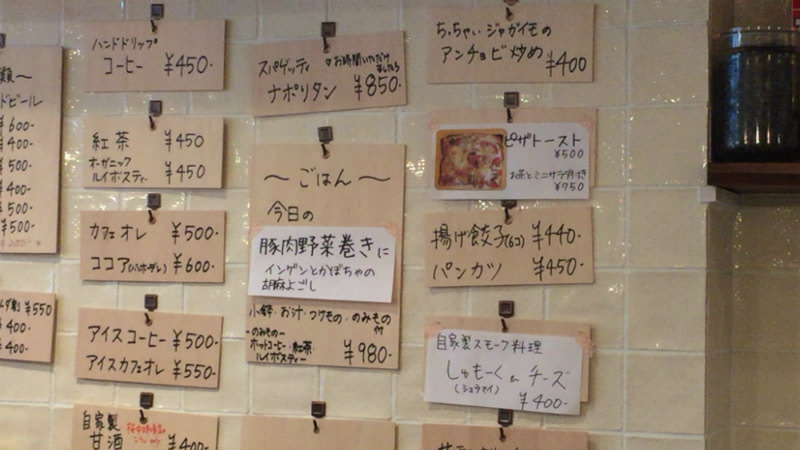 類〜
ドビール
¥600-
¥400-
¥500-
¥400-
¥500-
¥500-
¥550
¥400-
¥400-
ハンドドリップ
コーヒー ¥450.-
紅茶 ¥450
オーガニック
ルイボスティー ¥450
カフェオレ ¥500-
ココア ¥600-
アイスコーヒー ¥500-
アイスカフェオレ ¥550-
自家製
甘酒 ¥400-
スパゲッティ ♡お時間いただけましたら
ナポリタン ¥850.
〜ごはん〜
今日の
豚肉野菜巻きに
インゲンとかぼちゃの
胡麻よごし
小鉢・お汁・つけもの・のみもの付
-のみもの-
ホットコーヒー・紅茶・
ルイボスティー ¥980.-
ちっちゃいジャガイモの
アンチョビ炒め ¥400
ピザトースト
¥500
お茶とミニサラダ付き
¥750
揚げ餃子(6コ) ¥440-
パンカツ ¥450.-
自家製スモーク料理
しゅもーくinチーズ
(シュウマイ)
¥400-